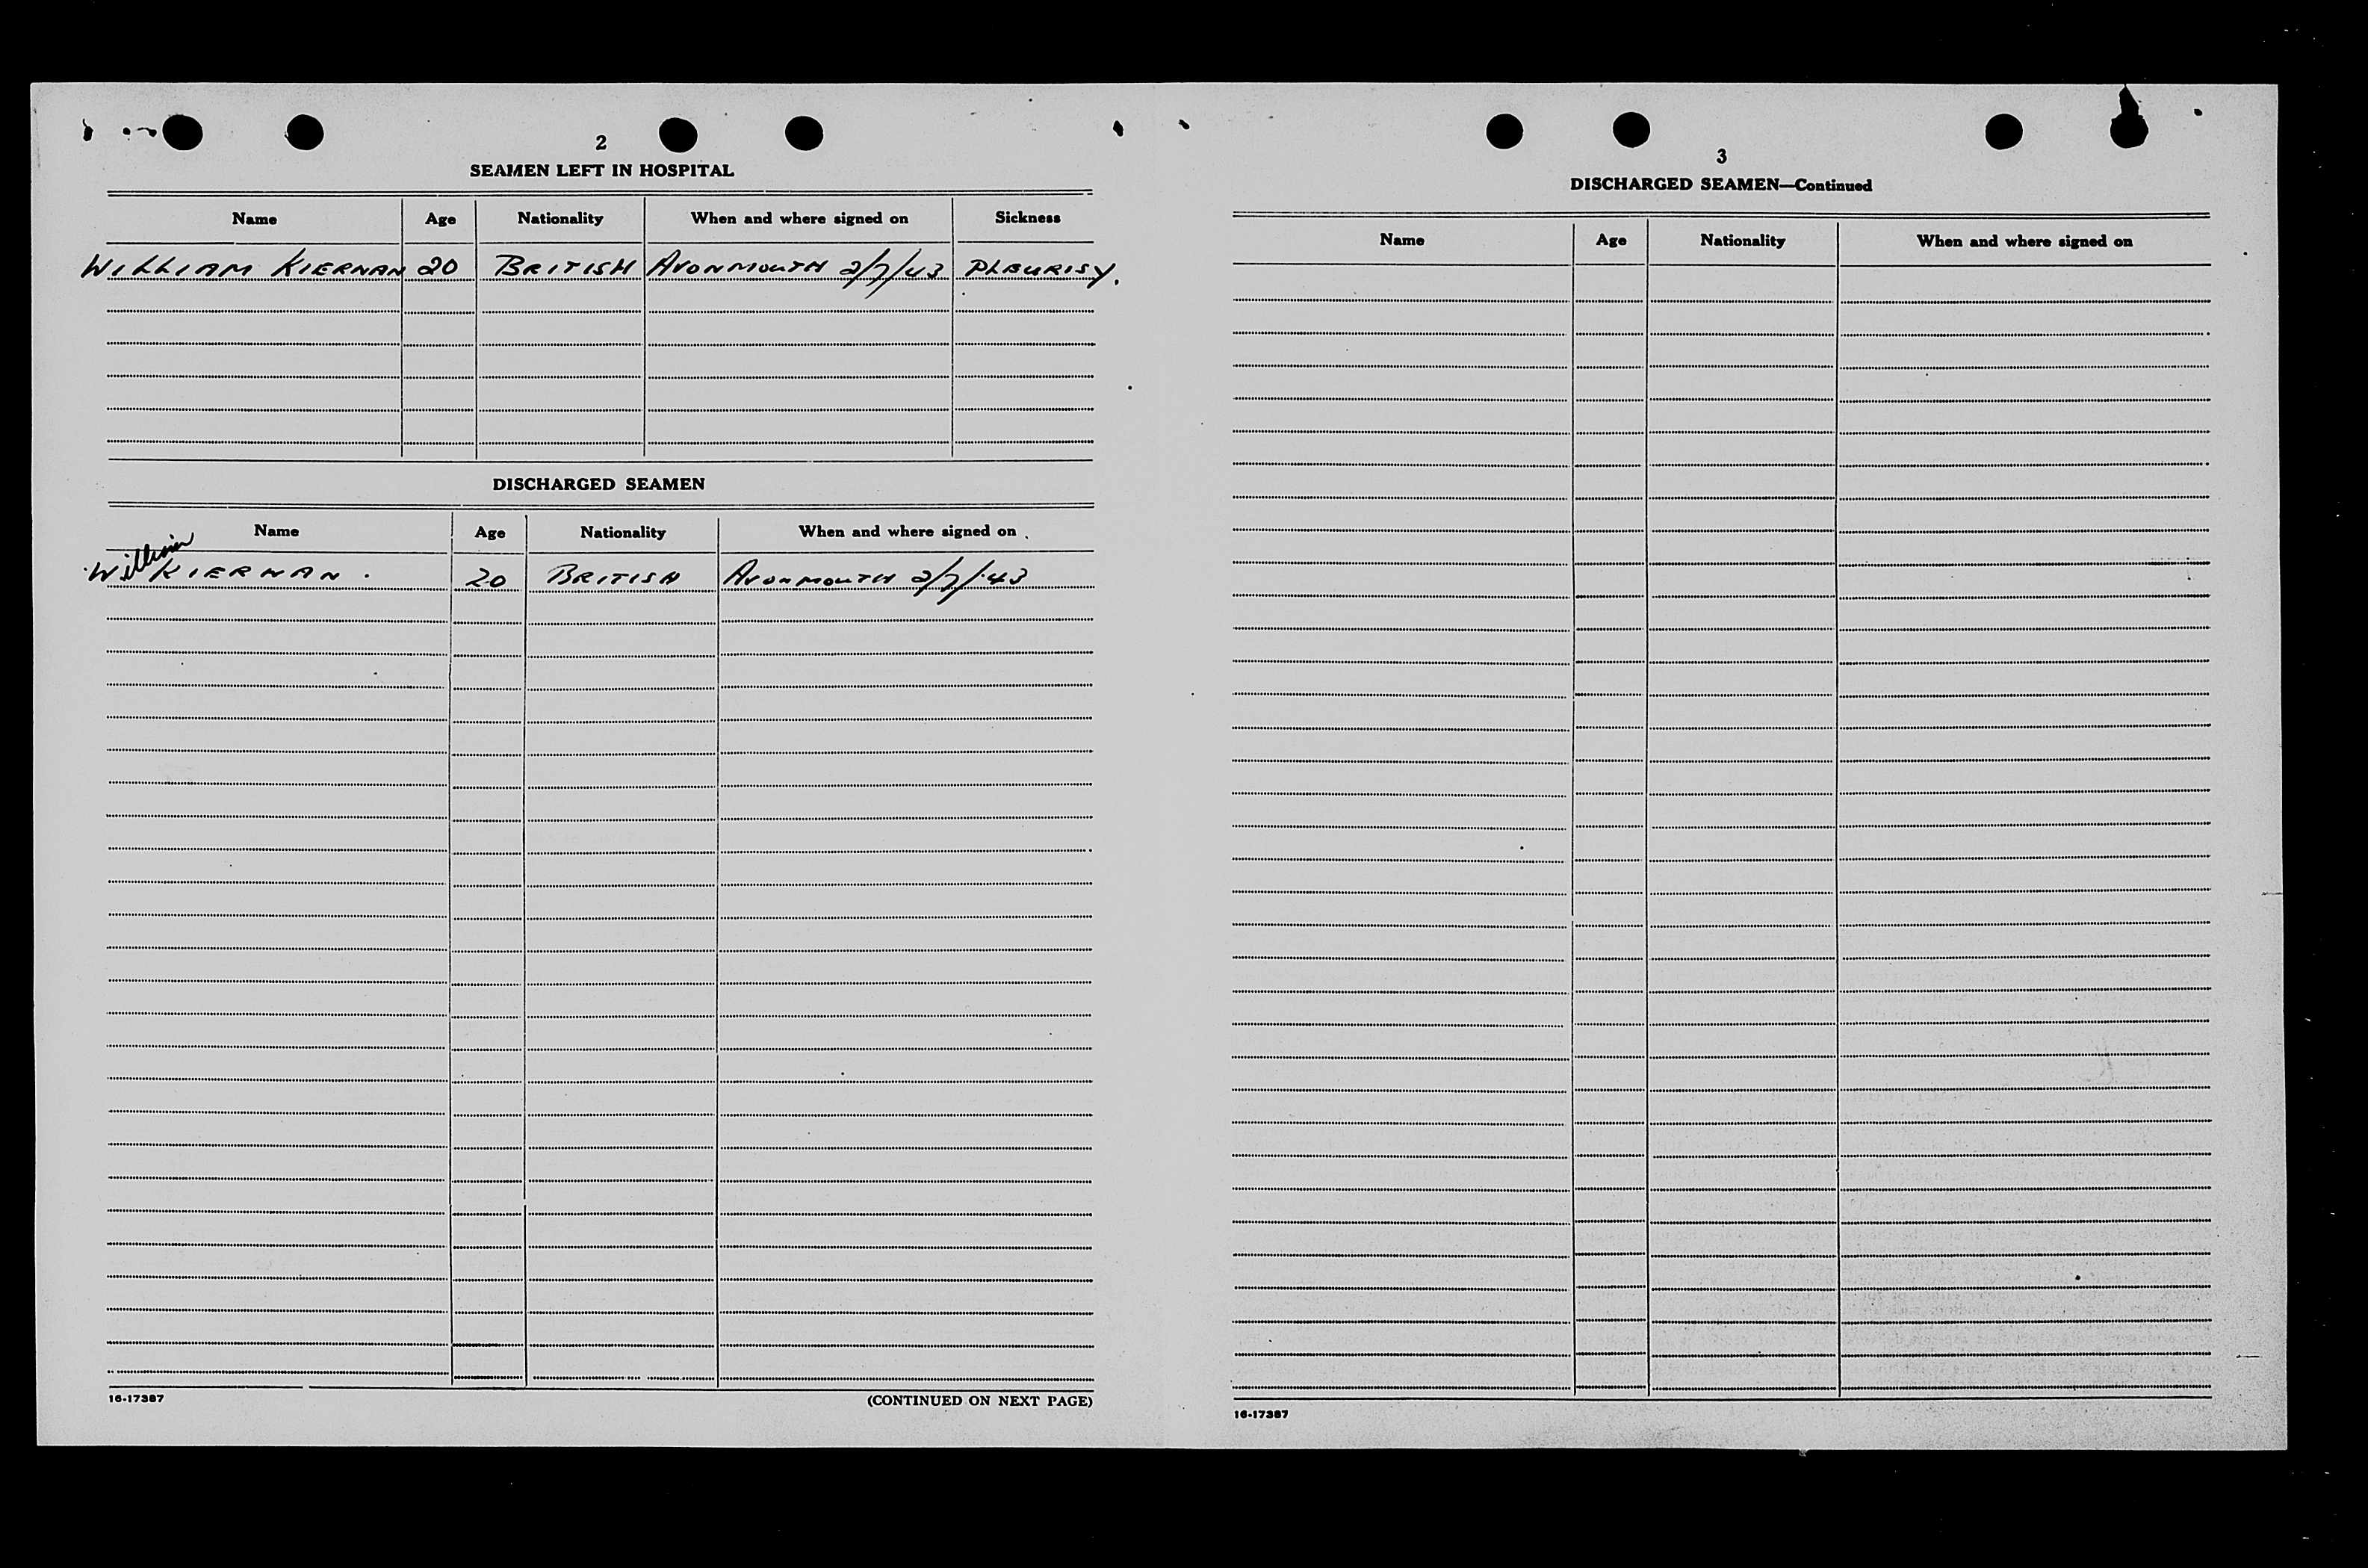 2
SEAMEN LEFT IN HOSPITAL
Name Age Nationality When and where signed on Sickness
WILLIAM KIERNAN 20 BRITISH AVONMOUTH 2/7/43 PLEURISY.
DISCHARGED SEAMEN
Name Age Nationality When and where signed on
William KIERNAN. 20 BRITISH AVONMOUTH 2/7/43
16-17387 (CONTINUED ON NEXT PAGE)
3
DISCHARGED SEAMEN—Continued
Name Age Nationality When and where signed on
16-17387